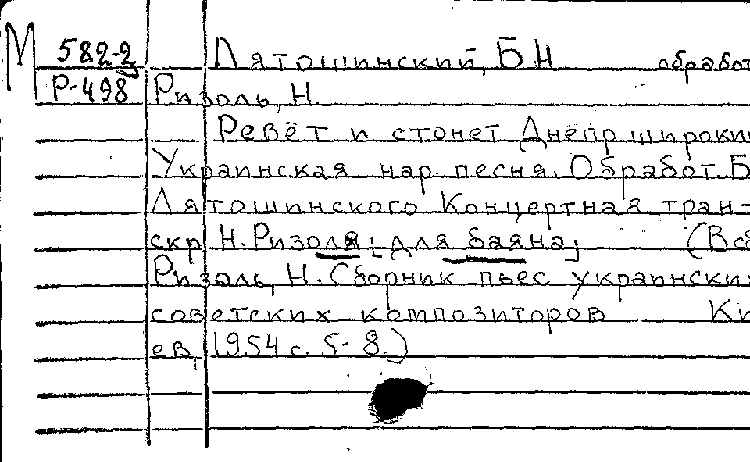 М 582-2 Лятошинский, Б.Н обработ
Р-498 Ризоль, Н.
Ревёт и стонет Днепр широкий
Украинская нар песня. Обработ. Б
Лятошинского Концертная тран-
скр Н. Ризоля; для баяна; (Вс
Ризоль, Н. Сборник пьес украински
советских композиторов Ки
ев, 1954 с. 5-8.)